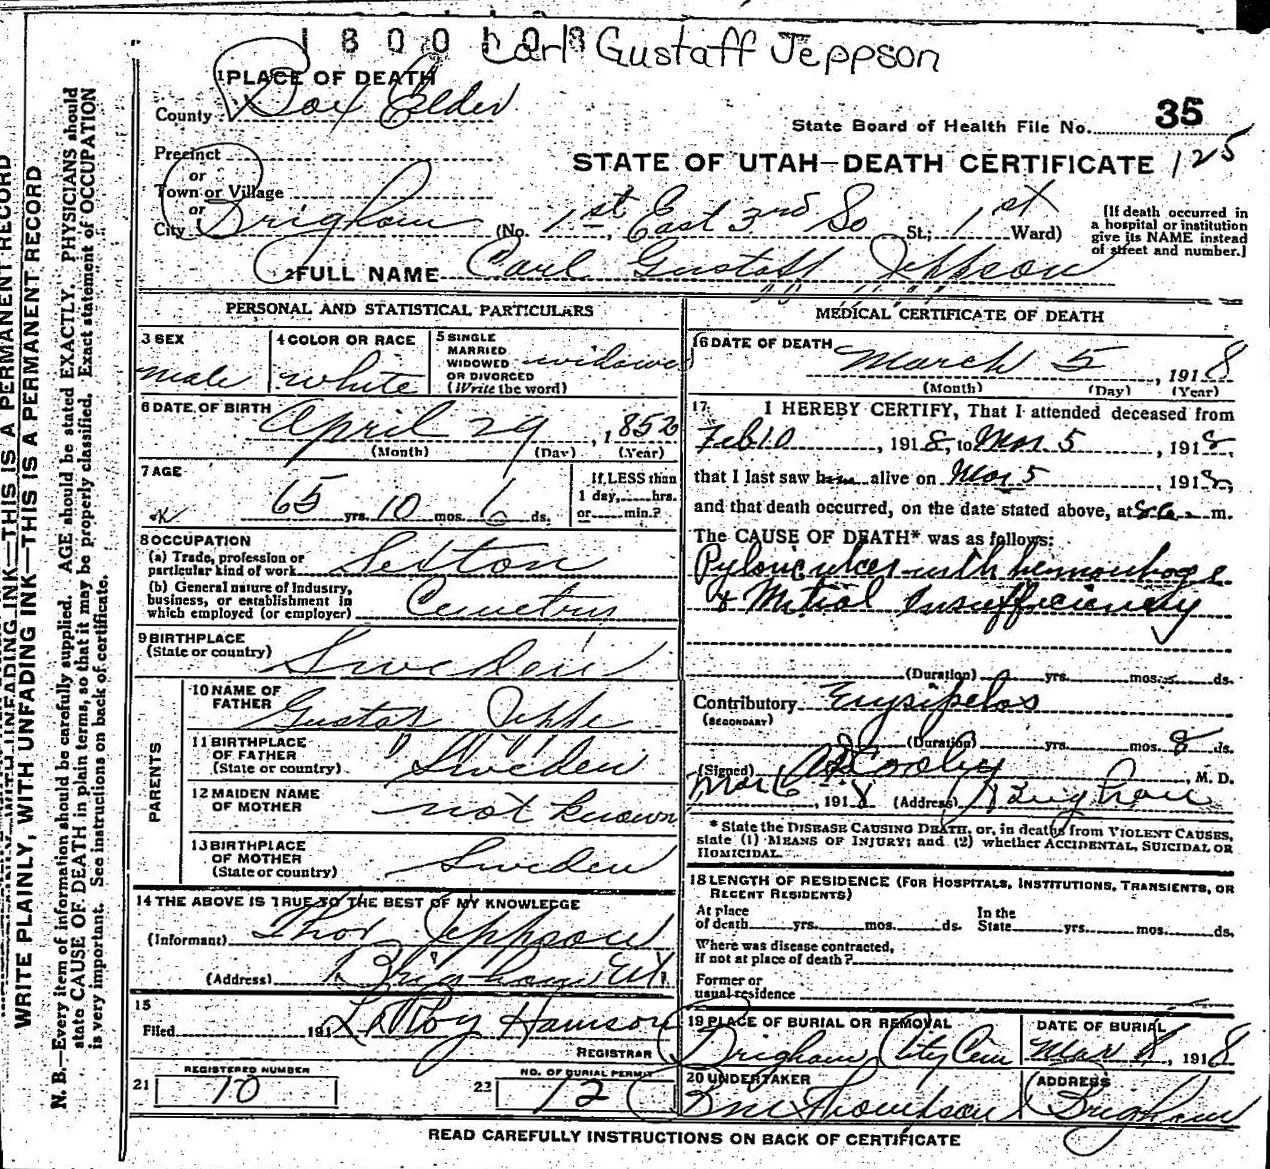 1800108 Carl Gustaff Jeppson
1 PLACE OF DEATH
County Box Elder
State Board of Health File No. 35
Precinct
or
Town or Village
or
City Brigham
STATE OF UTAH—DEATH CERTIFICATE 125
(No. 1st East 3rd So St.; 1st Ward)
[If death occurred in
a hospital or institution
give its NAME instead
of street and number.]
2 FULL NAME Carl Gustaff Jeppson
PERSONAL AND STATISTICAL PARTICULARS
3 SEX
male
4 COLOR OR RACE
white
5 SINGLE
MARRIED
WIDOWED
OR DIVORCED
(Write the word)
widowed
6 DATE OF BIRTH
April 29, 1852
(Month) (Day) (Year)
7 AGE
65 yrs. 10 mos. 6 ds.
If LESS than
1 day, hrs.
or min.?
8 OCCUPATION
(a) Trade, profession or
particular kind of work Sexton
(b) General nature of Industry,
business, or establishment in
which employed (or employer)
9 BIRTHPLACE
(State or country) Sweden
PARENTS
10 NAME OF
FATHER Gustav Jeppe
11 BIRTHPLACE
OF FATHER
(State or country) Sweden
12 MAIDEN NAME
OF MOTHER not known
13 BIRTHPLACE
OF MOTHER
(State or country) Sweden
14 THE ABOVE IS TRUE TO THE BEST OF MY KNOWLEDGE
(Informant) Thor Jeppson
(Address) Brigham Ut
15
Filed 191 LeRoy Hamson
REGISTRAR
21 REGISTERED NUMBER 10
22 NO. OF BURIAL PERMIT 12
MEDICAL CERTIFICATE OF DEATH
16 DATE OF DEATH
March 5, 1918
(Month) (Day) (Year)
17 I HEREBY CERTIFY, That I attended deceased from
Feb 10, 1918, to Mar. 5, 1918,
that I last saw him alive on Mar 5, 1918,
and that death occurred, on the date stated above, at m.
The CAUSE OF DEATH* was as follows:
Pyloric ulcer with hemorrhage
& Mitral Insufficiency
(Duration) yrs. mos. ds.
Contributory Erysipelas
(SECONDARY)
(Duration) yrs. mos. 8 ds.
(Signed) M. D.
Mar 6, 1918 (Address) Brigham
* State the DISEASE CAUSING DEATH, or, in deaths from VIOLENT CAUSES,
state (1) MEANS OF INJURY; and (2) whether ACCIDENTAL, SUICIDAL OR
HOMICIDAL.
18 LENGTH OF RESIDENCE (FOR HOSPITALS, INSTITUTIONS, TRANSIENTS, OR
RECENT RESIDENTS)
At place
of death yrs. mos. ds.
In the
State yrs. mos. ds.
Where was disease contracted,
if not at place of death?
Former or
usual residence
19 PLACE OF BURIAL OR REMOVAL
Brigham City Cem
DATE OF BURIAL
Mar 8, 1918
20 UNDERTAKER
Thompson
ADDRESS
Brigham
READ CAREFULLY INSTRUCTIONS ON BACK OF CERTIFICATE
WRITE PLAINLY, WITH UNFADING INK—THIS IS A PERMANENT RECORD
N. B.—Every item of information should be carefully supplied. AGE should be stated EXACTLY. PHYSICIANS should
state CAUSE OF DEATH in plain terms, so that it may be properly classified. Exact statement of OCCUPATION
is very important. See instructions on back of certificate.